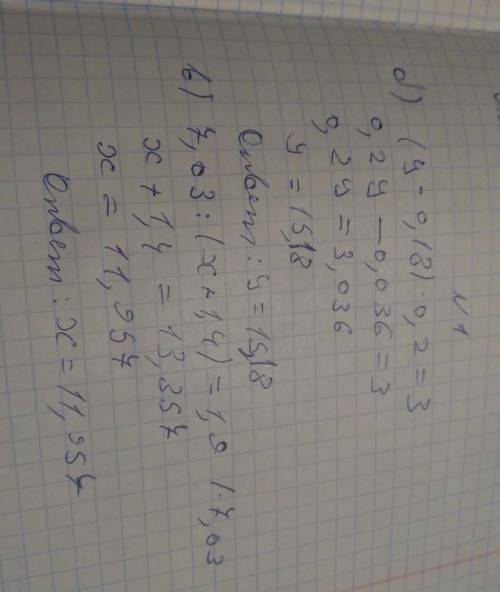 №1
а) (у - 0,18) · 0,2 = 3
0,2у - 0,036 = 3
0,2у = 3,036
у = 15,18
Ответ: у = 15,18
в) 7,03 : (х + 1,4) = 1,9 | · 7,03
х + 1,4 = 13,357
х = 11,957
Ответ: х = 11,957